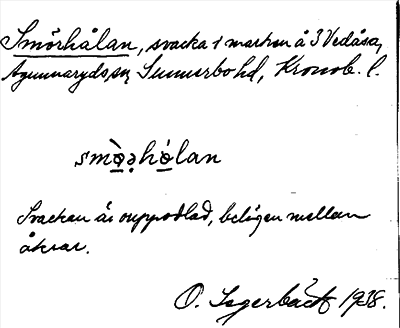 Smörhålan, svacka i marken å 3 Vedåsa,
Agunnaryds sn, Sunnerbo hd, Kronob. l.
smø̀̀ǝhó̱lan
Svackan är ouppodlad, belägen mellan
åkrar.
O. Lagerbäck 1938.